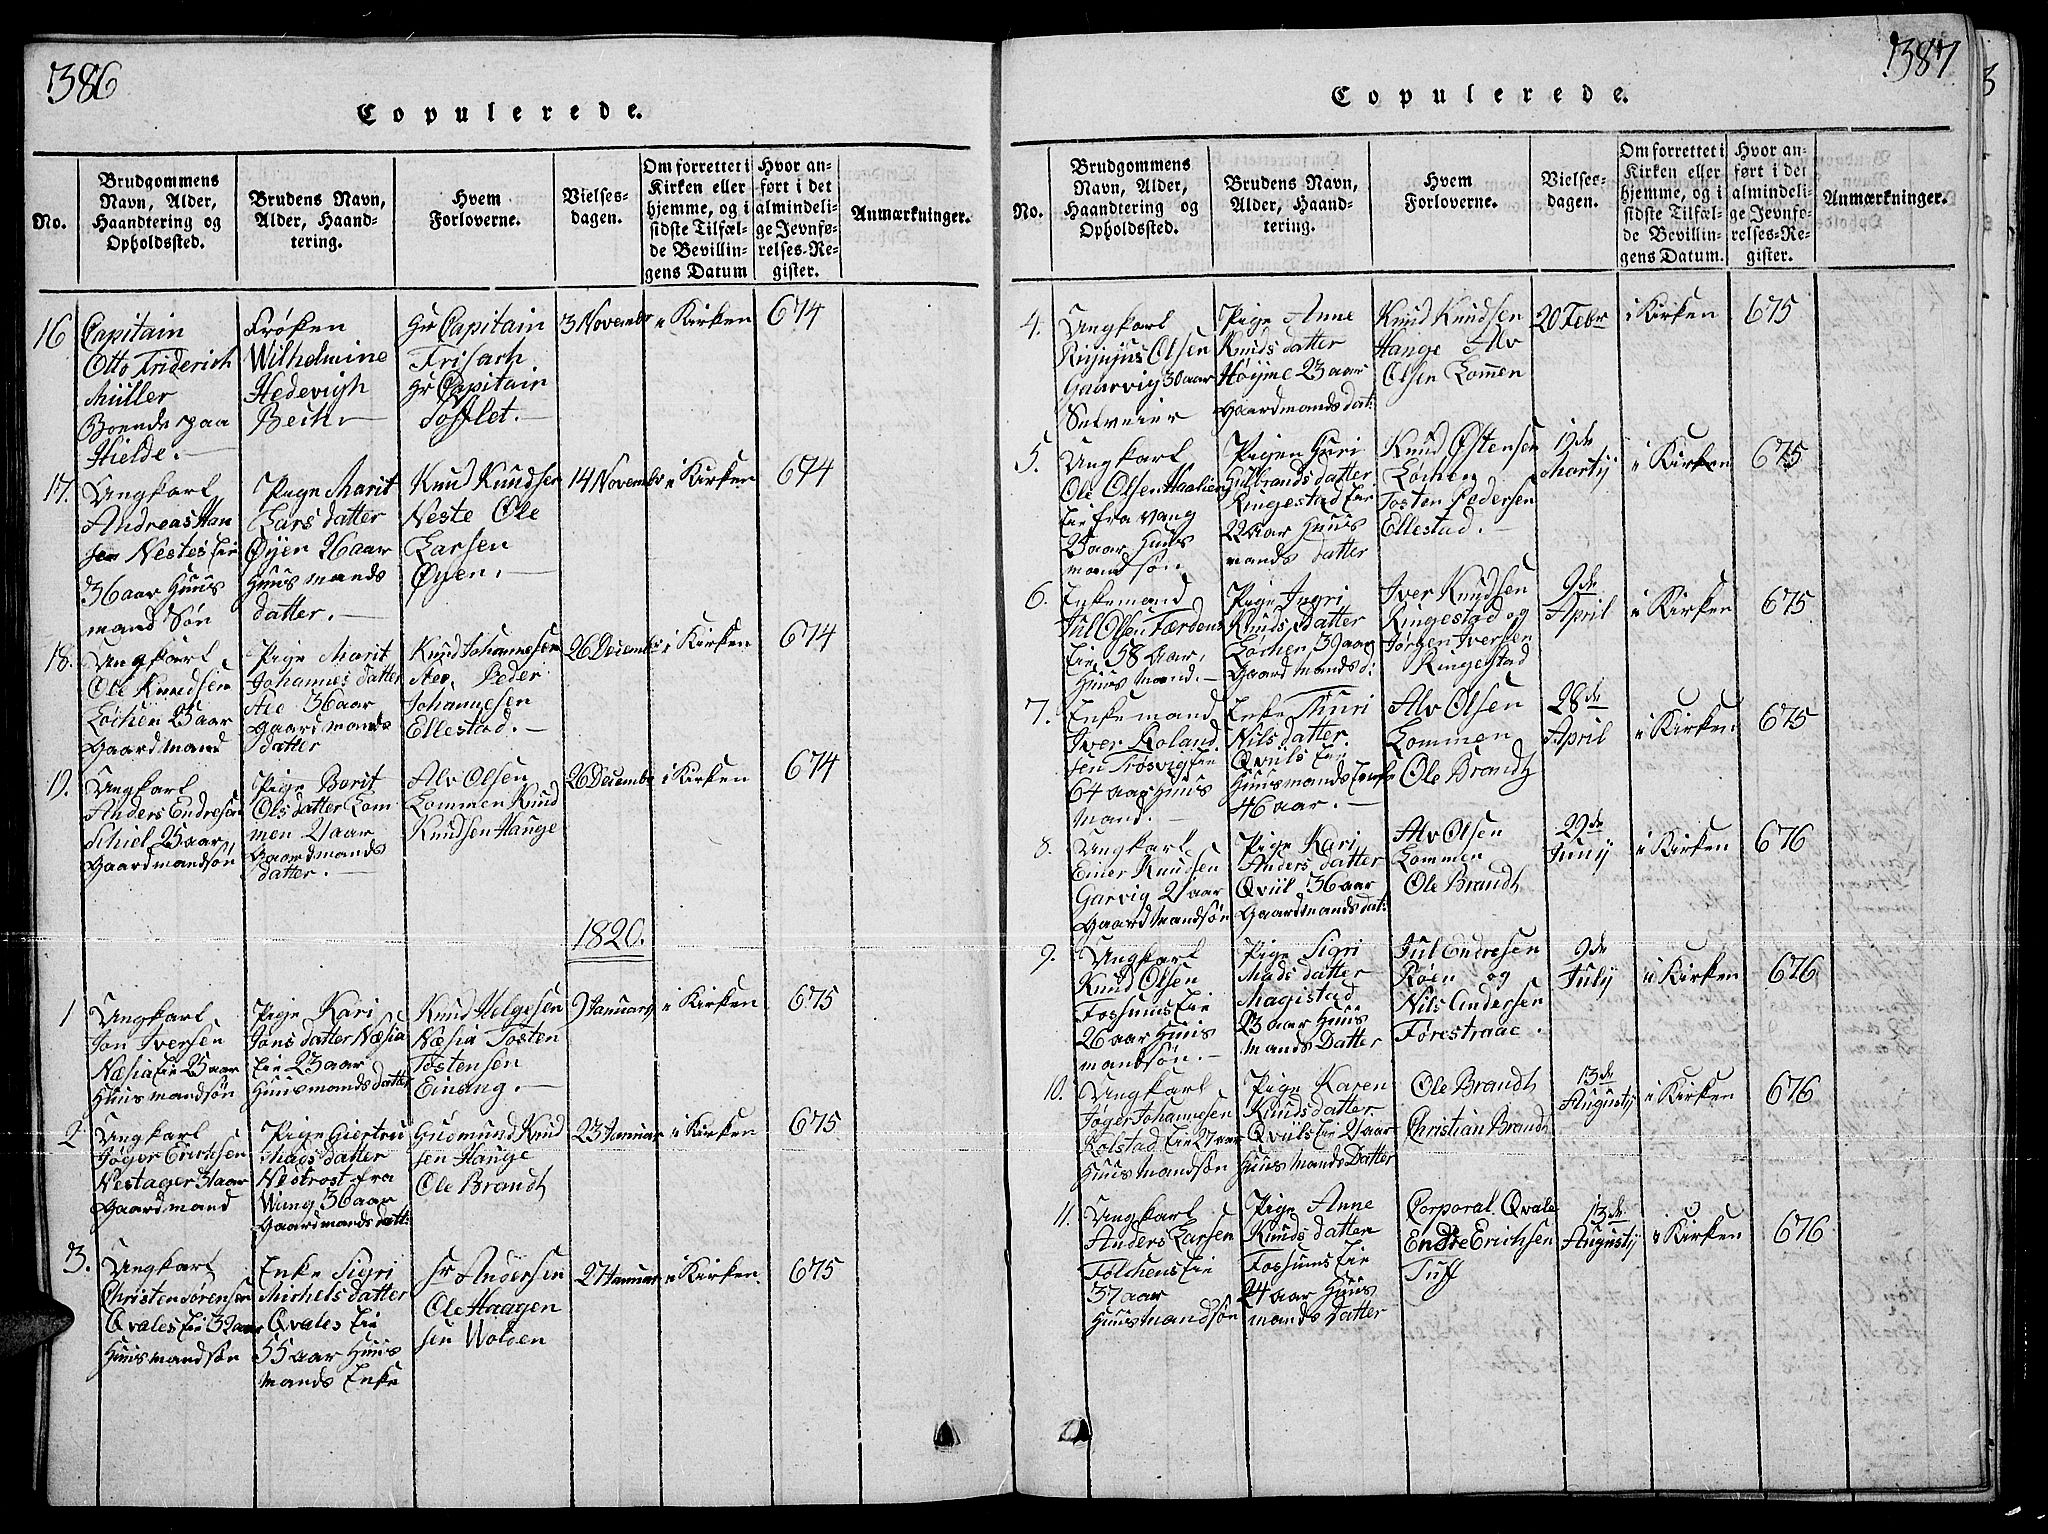 386
Copulerede.
No.
Brudgommens
Navn, Alder,
Haandtering og
Opholdssted.
Brudens Navn,
Alder, Haand-
tering.
Hvem
Forloverne.
Vielses-
dagen.
Om forrettet i
Kirken eller
hjemme, og i
sidste Tilfæl-
de Bevillin-
gens Datum
Hvor an-
ført i det
almindeli-
ge Jevnfø-
relses-Re-
gister.
Anmærkninger.
16
Capitain
Otto Friderich
Müller
Boende paa
Hielde.
Frøken
Wilhelmine
Hedevigh
Bech
Hr Capitain
Frisach
Hr Capitain
Tofflet.
3 Novembr
i Kirken
674
17.
Ungkarl
Andreas Han
sen Nestes Eie
36 aar Huus
mand Søn
Pige Marit
Lars datter
Øyen 26 aar
Huus mands
datter.
Knud Knudsen
Neste Ole
Larsen
Øyen.
14 Novembr
i Kirken
674
18.
Ungkarl
Ole Knudsen
Lochen 25 aar
Gaardmand
Pige Marit
Johannes datter
36 aar
Gaardmands
datter
Knud Johannesen
Peder
Johannesen
Ellestad.
26 Decembr
i Kirken
674
19.
Ungkarl
Anders Endresen
25 aar
Gaardmandsøn
Pige Berit
Ols datter Lom
men 21 aar
Gaardmands
datter.
Alv Olsen
Lommen Knud
Knudsen Hauge
26 Decembr
i Kirken
674
1820.
1
Ungkarl
Jon Iversen
Næsia Eie 25 aar
Huusmandsøn
Pige Kari
Jons datter Næsia
Eie 23 aar
Huusmands datter
Knud Helgesen
Næsia Tosten
Tostensen
Einang.
9 Januarij
i Kirken
675
2
Ungkarl
Jøger Erichsen
Nestager 31 aar
Gaardmand
Pige Giertru
Mads datter
Nestrost fra
Wang 36 aar
Gaardmands datt:
Gudmund Knud
sen Hauge
Ole Brandt
23 Januar
i Kirken
675
3.
Ungkarl
Christen Sørensen
Qvales Eie 32 aar
Huusmandsøn
Enke Sigri
Michels datter
Qvales Eie
55 aar Huus
mands Enke
Sr Andersen
Ole Haagen
sen Wolden
27 Januar
i Kirken.
675
387
Copulerede.
No.
Brudgommens
Navn, Alder,
Haandtering og
Opholdssted.
Brudens Navn,
Alder, Haand-
tering.
Hvem
Forloverne.
Vielses-
dagen.
Om forrettet i
Kirken eller
hjemme, og i
sidste Tilfæl-
de Bevillin-
gens Datum.
Hvor an-
ført i det
almindeli-
ge Jevnfø-
relses-Re-
gister.
Anmærkninger.
4.
Ungkarl
Olsen
Gaarvig 30 aar
Selveier
Pige Anne
Knuds datter
Høyme 23 aar
Gaardmands dat:
Knud Knudsen
Hauge Alv
Olsen Lommen
20 Febr
i Kirken
675
5.
Ungkarl
Ole Olsen
Eie fra Vang
25 aar Huus
mandsøn
Pigen Guri
Gulbrands datter
Ringestad Eie
22 aar Huus
mands datter
Knud Østensen
Lomen
Tosten Pedersen
Ellestad.
12de
Martij
i Kirken
675
6.
Enkemand
Jul Olsen Færdens
Eie 58 Aar,
Huus mand.
Pige Ingri
Knuds datter
Lochen, 39 aar
Gaardmands d:
Iver Knudsen
Ringestad og
Jørgen Iversen
Ringestad
9de
April
i Kirken
675
7.
Enkemand
Iver Roland
sen Trøsvig Eie
64 aar Huus
mand.
Enke Thuri
Nils datter
Qviils Eie
Huusmands Enke
46 aar.
Alv Olsen
Lommen
Ole Brandt
28de
April
i Kirken
675
8.
Ungkarl
Einer Knudsen
Garvig 21 aar
Gaardmandsøn
Pige Kari
Anders datter
Qviil 36 aar
Gaardmands dat:
Alv Olsen
Lommen
Ole Brandt
29de
Junij
i Kirken
676
9.
Ungkarl
Knud Olsen
Fossums Eie
26 aar Huus
mandsøn.
Pige Sigri
Mads datter
Magistad
23 aar Huus
mands Datter
Jul Endresen
Røen og
Nils Andersen
Førestraae.
9de
Julij
i Kirken
676
10.
Ungkarl
Jøger Johannesen
Rolstad Eie 27 aar
Huusmandsøn
Pige Karen
Knudsdatter
Qviils Eie 21 aar
Huusmands Datter
Ole Brandt
Christian Brandt
13de
Augustij
i Kirken
676
11.
Ungkarl
Anders Larsen
Følchens Eie
37 aar
Huusmandsøn
Pige Anne
Knuds datter
Fossums Eie
24 aar Huus
mands Datter
Corporal Qvale
Endre Erichsen
Tuff
13de
Augustij
i Kirken
676